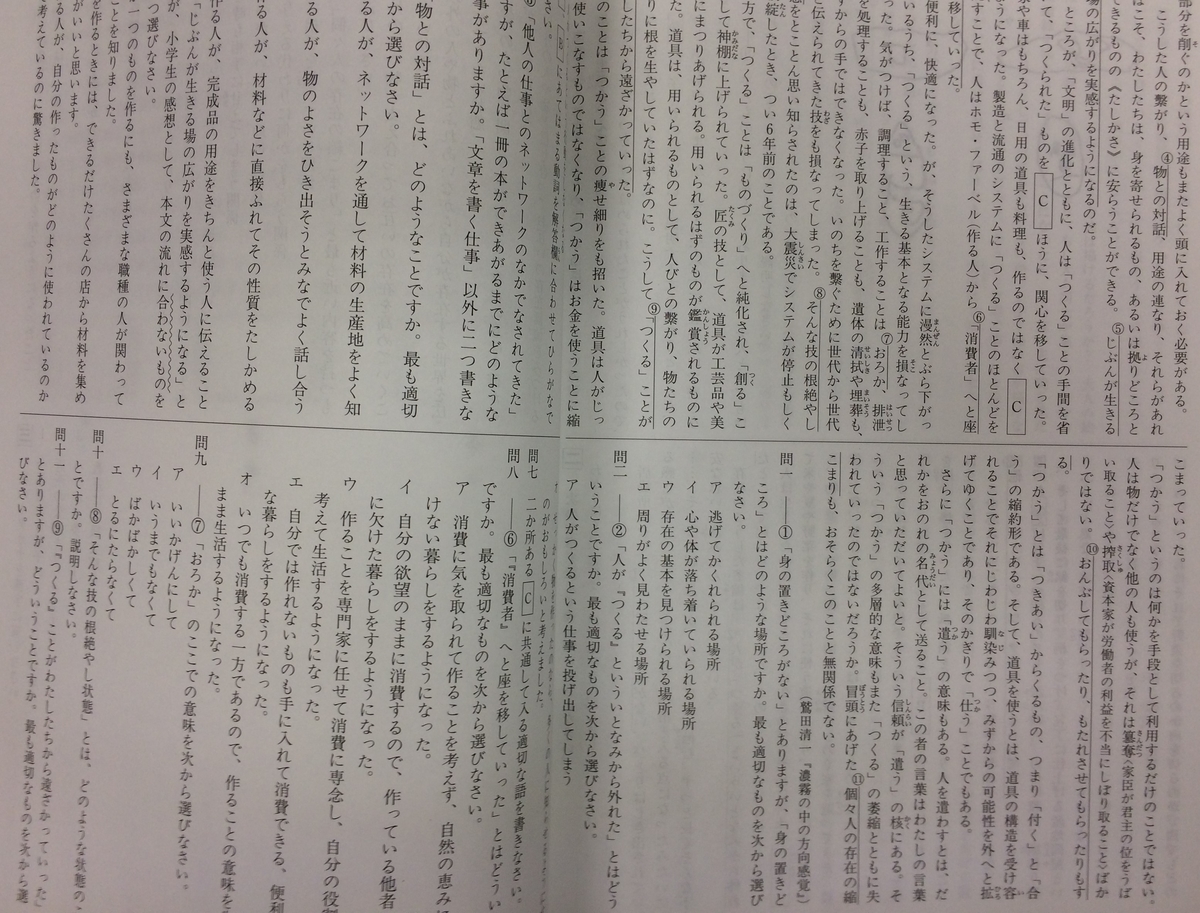 部分を削ぐのかという用途もまたよく頭に入れておく必要がある。
こうした人の繋がり、④物との対話、用途の連なり、それらがあれ
ばこそ、わたしたちは、身を寄せられるもの、あるいは拠りどころと
できるものの《たしかさ》に安らうことができる。⑤じぶんが生きる
場の広がりを実感するようになるのだ。
ところが、「文明」の進化とともに、人は「つくる」ことの手間を省
いて、「つくられた」ものを C ほうに、関心を移していった。
家や車はもちろん、日用の道具も料理も、作るのではなく C
ようになった。製造と流通のシステムに「つくる」ことのほとんどを
すことで、人はホモ・ファーベル(作る人)から⑥「消費者」へと座
移していった。
便利に、快適になった。が、そうしたシステムに漫然とぶら下が
いるうち、「つくる」という、生きる基本となる能力を損なってし
った。気がつけば、調理すること、工作することは⑦おろか、排泄
を処理することも、赤子を取り上げることも、遺体の清拭や埋葬も、
すからの手ではできなくなった。いのちを繋ぐために世代から世代
と伝えられてきた技をも損なってしまった。⑧そんな技の根絶やし
態をとことん思い知らされたのは、大震災でシステムが停止もしく
綻したとき、つい6年前のことである。
方で、「つくる」ことは「ものづくり」へと純化され、「創る」こ
して神棚に上げられていった。匠の技として、道具が工芸品や美
にまつりあげられる。用いられるはずのものが鑑賞されるものに
た。道具は、用いられるものとして、人びとの繋がり、物たちの
りに根を生やしていたはずなのに。こうして⑨「つくる」ことが
したちから遠ざかっていった。
のことは「つかう」ことの痩せ細りも招いた。道具は人がじっ
使いこなすものではなくなり、「つかう」はお金を使うことに縮
こまっていった。
「つかう」というのは何かを手段として利用するだけのことではない。
人は物だけでなく他の人も使うが、それは簒奪〈家臣が君主の位をうば
い取ること〉や搾取〈資本家が労働者の利益を不当にしぼり取ること〉ばか
りではない。⑩おんぶしてもらったり、もたれさせてもらったりもす
る。
「つかう」とは「つきあい」からくるもの、つまり「付く」と「合
う」の縮約形である。そして、道具を使うとは、道具の構造を受け容
れることでそれにじわじわ馴染みつつ、みずからの可能性を外へと拡
げてゆくことであり、そのかぎりで「仕う」ことでもある。
さらに「つかう」には「遣う」の意味もある。人を遣わすとは、だ
れかをおのれの名代として送ること。この者の言葉はわたしの言葉
と思っていただいてよいと。そういう信頼が「遣う」の核にある。そ
ういう「つかう」の多層的な意味もまた「つくる」の萎縮とともに失
われていったのではないだろうか。冒頭にあげた⑪個々人の存在の縮
こまりも、おそらくこのことと無関係でない。
(鷲田清一『濃霧の中の方向感覚』)
問一 ――①「身の置きどころがない」とありますが、「身の置きど
ころ」とはどのような場所ですか。最も適切なものを次から選び
なさい。
ア 逃げてかくれられる場所
イ 心や体が落ち着いていられる場所
ウ 存在の基本を見つけられる場所
エ 周りがよく見わたせる場所
問二 ――②「人が『つくる』といういとなみから外れた」とはどう
いうことですか。最も適切なものを次から選びなさい。
ア 人がつくるという仕事を投げ出してしまう
にあてはまる動詞を解答欄に合わせてひらがなで
さい。
他人の仕事とのネットワークのなかでなされてきた」
すが、たとえば一冊の本ができあがるまでにどのような
事がありますか。「文章を書く仕事」以外に二つ書きな
物との対話」とは、どのようなことですか。最も適切
から選びなさい。
る人が、ネットワークを通して材料の生産地をよく知
る人が、物のよさをひき出そうとみなでよく話し合う
る人が、材料などに直接ふれてその性質をたしかめる
作る人が、完成品の用途をきちんと使う人に伝えること
「じぶんが生きる場の広がりを実感するようになる」と
が、小学生の感想として、本文の流れに合わないものを
つ選びなさい。
一つのものを作るにも、さまざまな職種の人が関わって
ことを知りました。
を作るときには、できるだけたくさんの店から材料を集め
がいいと思います。
る人が、自分の作ったものがどのように使われているのか
を考えているのに驚きました。
のがおもしろいと考えました。
問七 二か所ある C に共通して入る適切な語を書きなさい。
問八 ――⑥「『消費者』へと座を移していった」とはどうい
ですか。最も適切なものを次から選びなさい。
ア 消費に気を取られて作ることを考えず、自然の恵みに
けない暮らしをするようになった。
イ 自分の欲望のままに消費するので、作っている他者
に欠けた暮らしをするようになった。
ウ 作ることを専門家に任せて消費に専念し、自分の役割
考えて生活するようになった。
エ 自分では作れないものも手に入れて消費できる、便利
な暮らしをするようになった。
オ いつでも消費する一方であるので、作ることの意味を
まま生活するようになった。
問九 ――⑦「おろか」のここでの意味を次から選びなさい。
ア いいかげんにして
イ いうまでもなくて
ウ ばかばかしくて
エ とるにたらなくて
問十 ――⑧「そんな技の根絶やし状態」とは、どのような状態のこ
とですか。説明しなさい。
問十一 ――⑨「『つくる』ことがわたしたちから遠ざかっていった」
とありますが、どういうことですか。最も適切なものを次から選
びなさい。